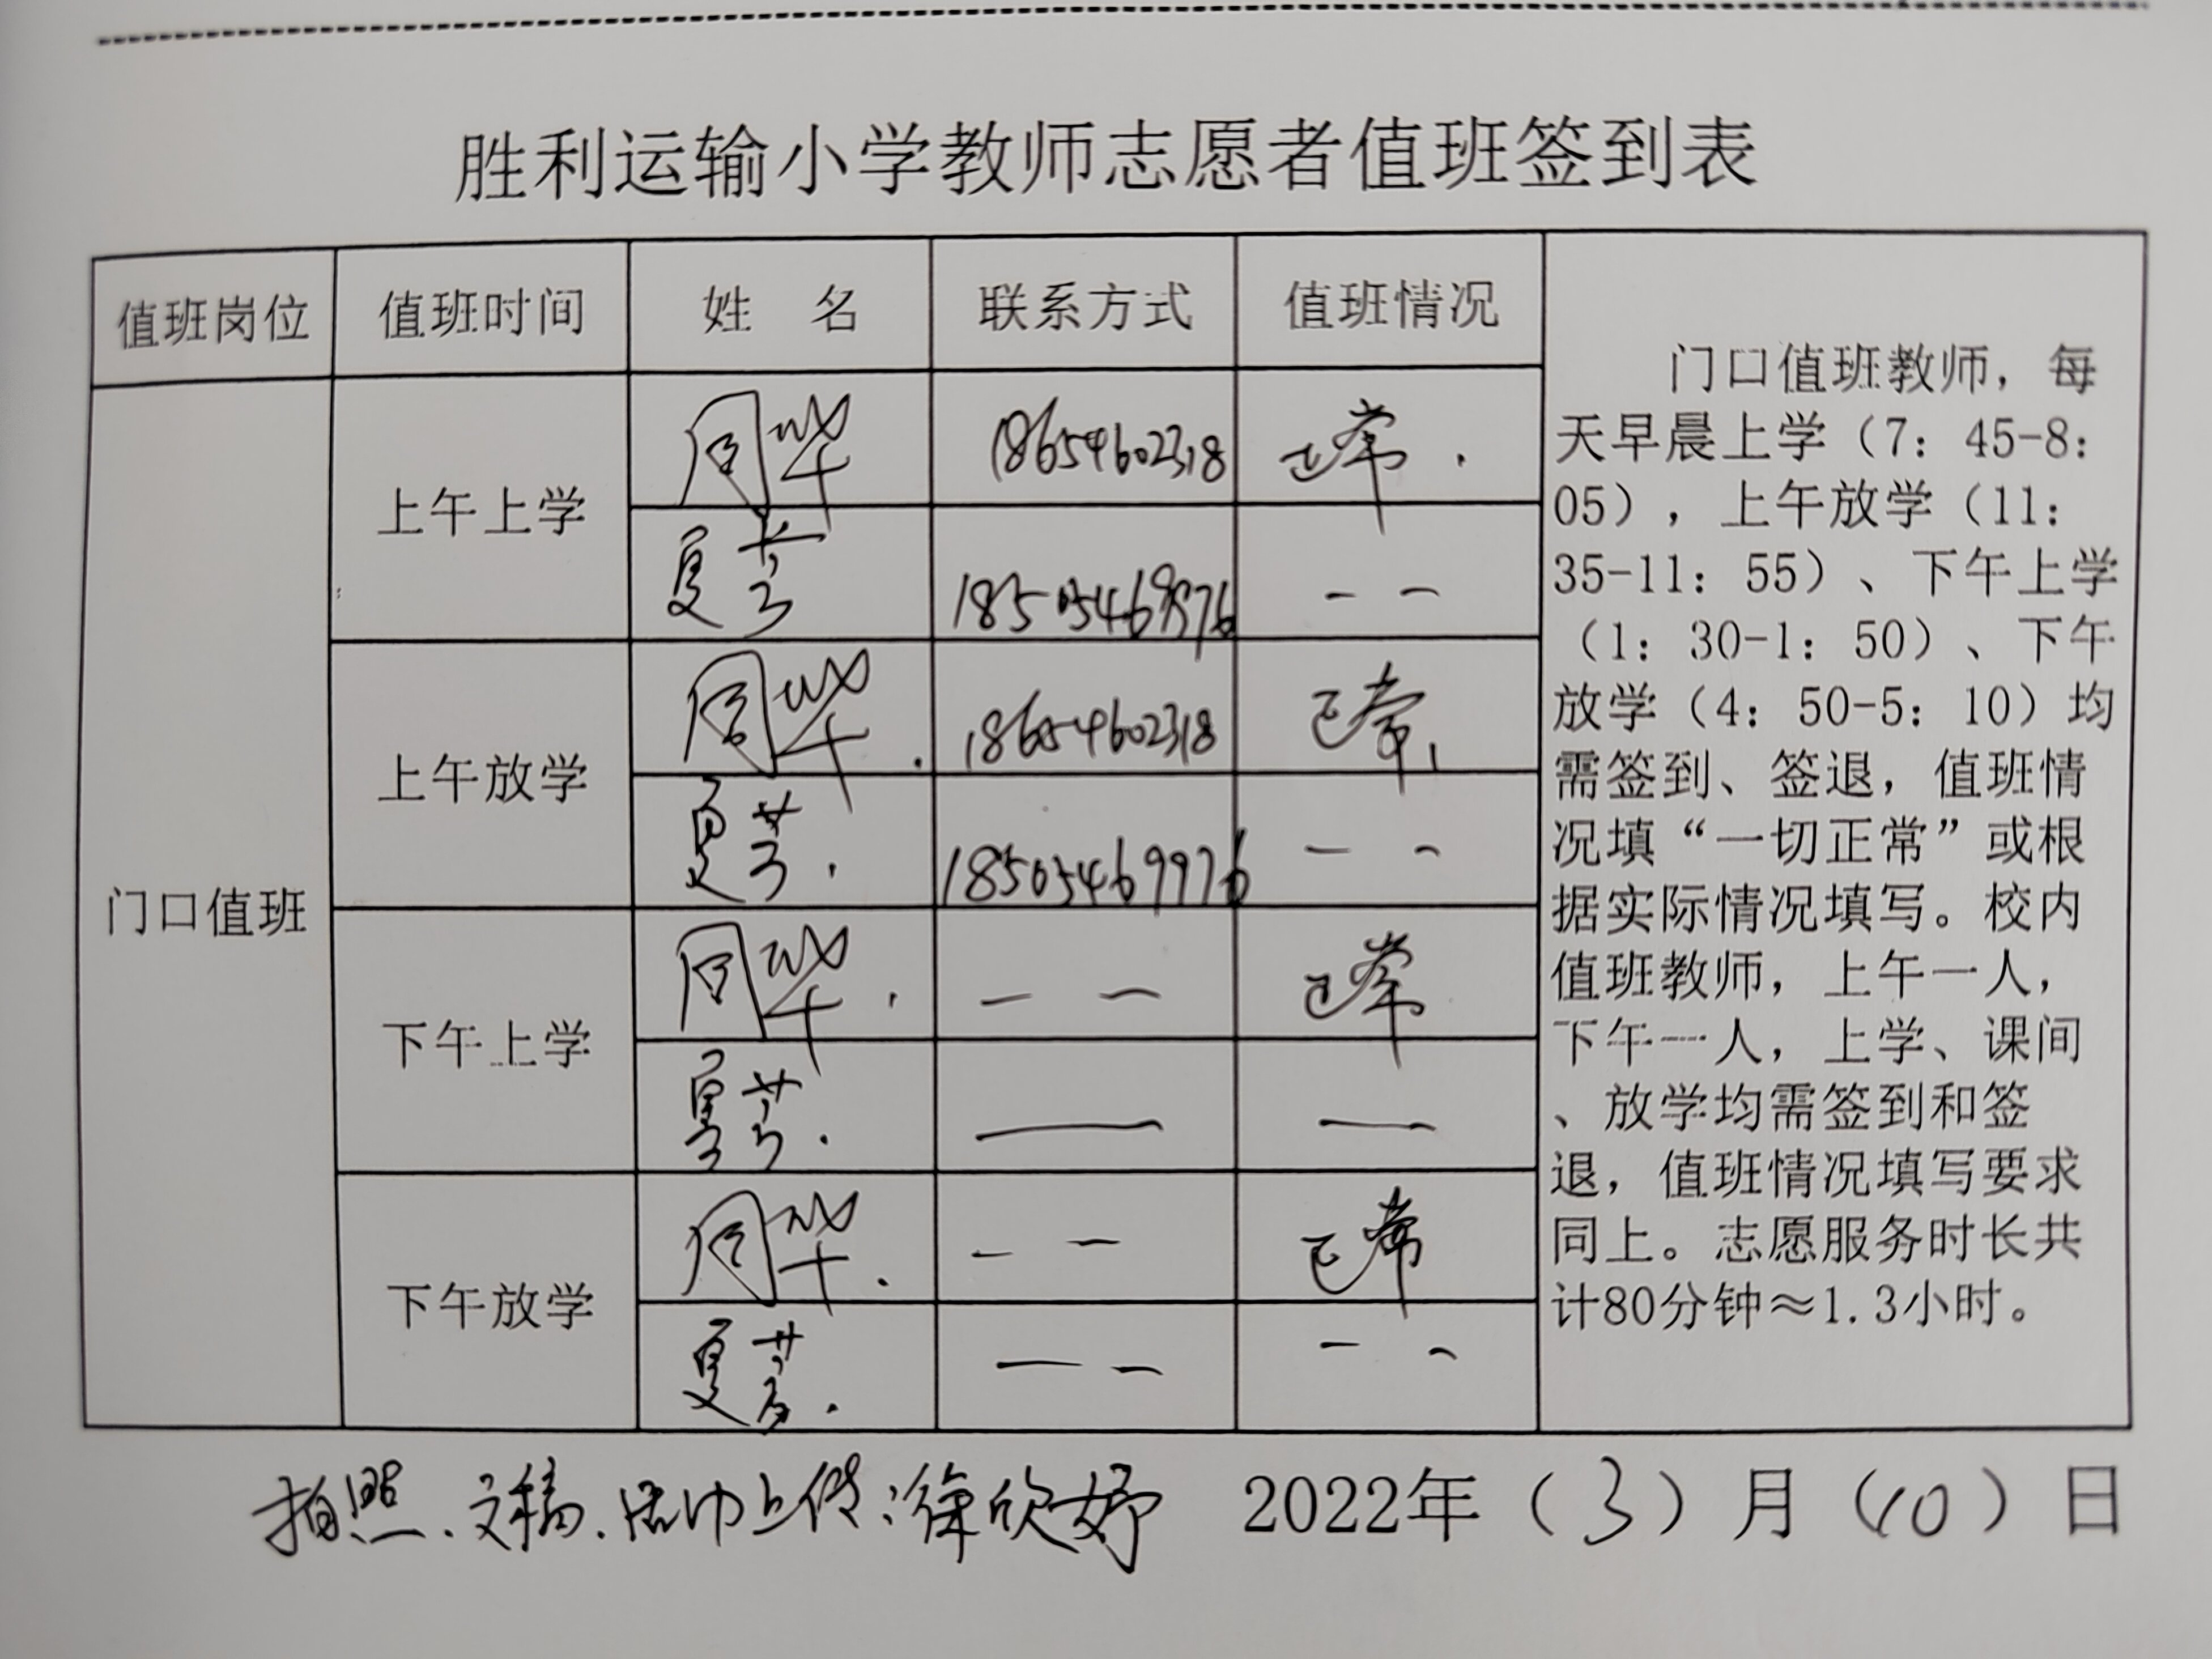 胜利运输小学教师志愿者值班签到表
值班岗位 值班时间 姓 名 联系方式 值班情况
门口值班
上午上学
周华 18654602318 正常.
夏芳 18505469976 — —
上午放学
周华. 18654602318 正常.
夏芳. 18505469976 — —
下午上学
周华. — — 正常
夏芳. — —
下午放学
周华. — — 正常
夏芳. — — — —
门口值班教师，每
天早晨上学（7：45-8：
05），上午放学（11：
35-11：55）、下午上学
（1：30-1：50）、下午
放学（4：50-5：10）均
需签到、签退，值班情
况填“一切正常”或根
据实际情况填写。校内
值班教师，上午一人，
下午一人，上学、课间
、放学均需签到和签
退，值班情况填写要求
同上。志愿服务时长共
计80分钟≈1.3小时。
拍照、文稿、活动上传：徐欣妤 2022年（3）月（10）日